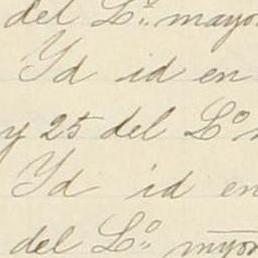 del L.º mayor
Yd id en
y 25 del Lº
Yd id en
del Lº myor